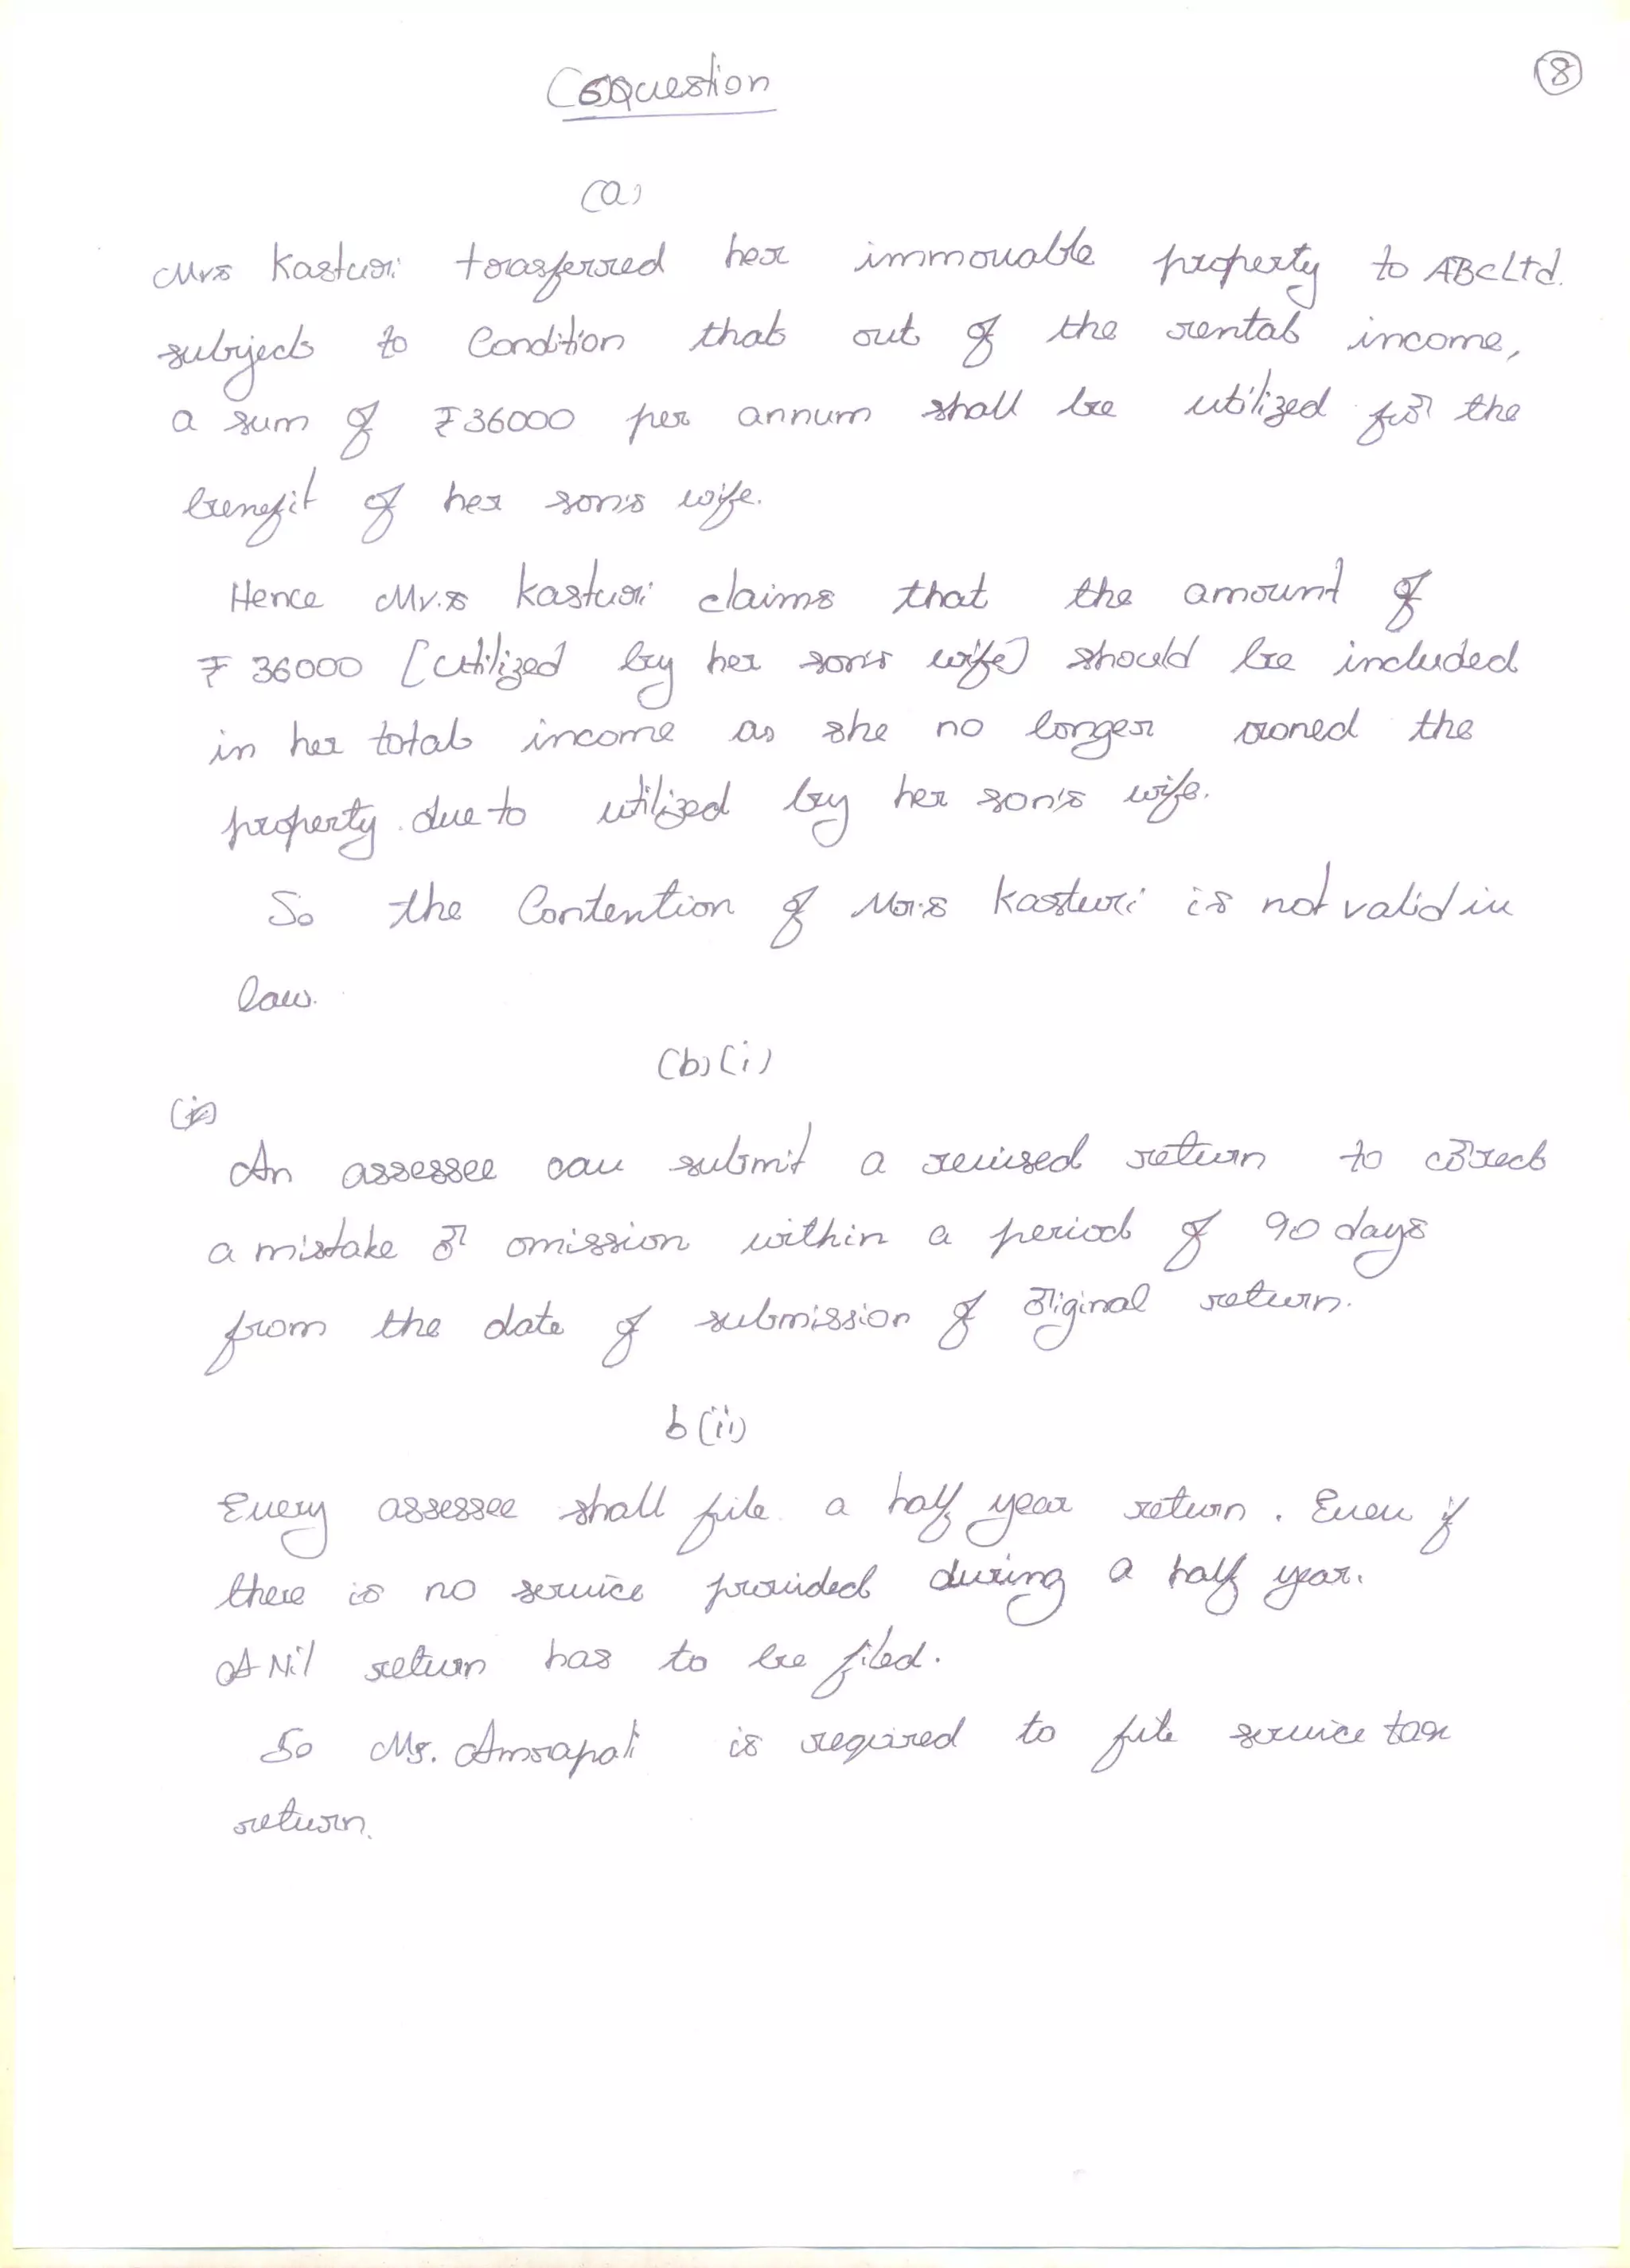 (6)Question
8
(a)
Mrs Kasturi trasferred her immovable property to ABC Ltd.
subject to Condition that out of the rental income,
a sum of ₹36000 per annum shall be utilized for the
benefit of her son's wife.
Hence Mr.s Kasturi claims that the amount of
₹ 36000 [utilized by her son's wife) should be included
in her total income as she no longer owned the
property. due to utilized by her son's wife.
So the Contention of Mr.s Kasturi is not valid in
law.
(b)(i)
An assessee can submit a revised return to correct
a mistake or omission within a period of 90 days
from the date of submission of original return.
b(ii)
Every assessee shall file a half year return. Even if
there is no service provided during a half year.
A Nil return has to be filed.
So Ms. Amrapali is required to file service tax
return.